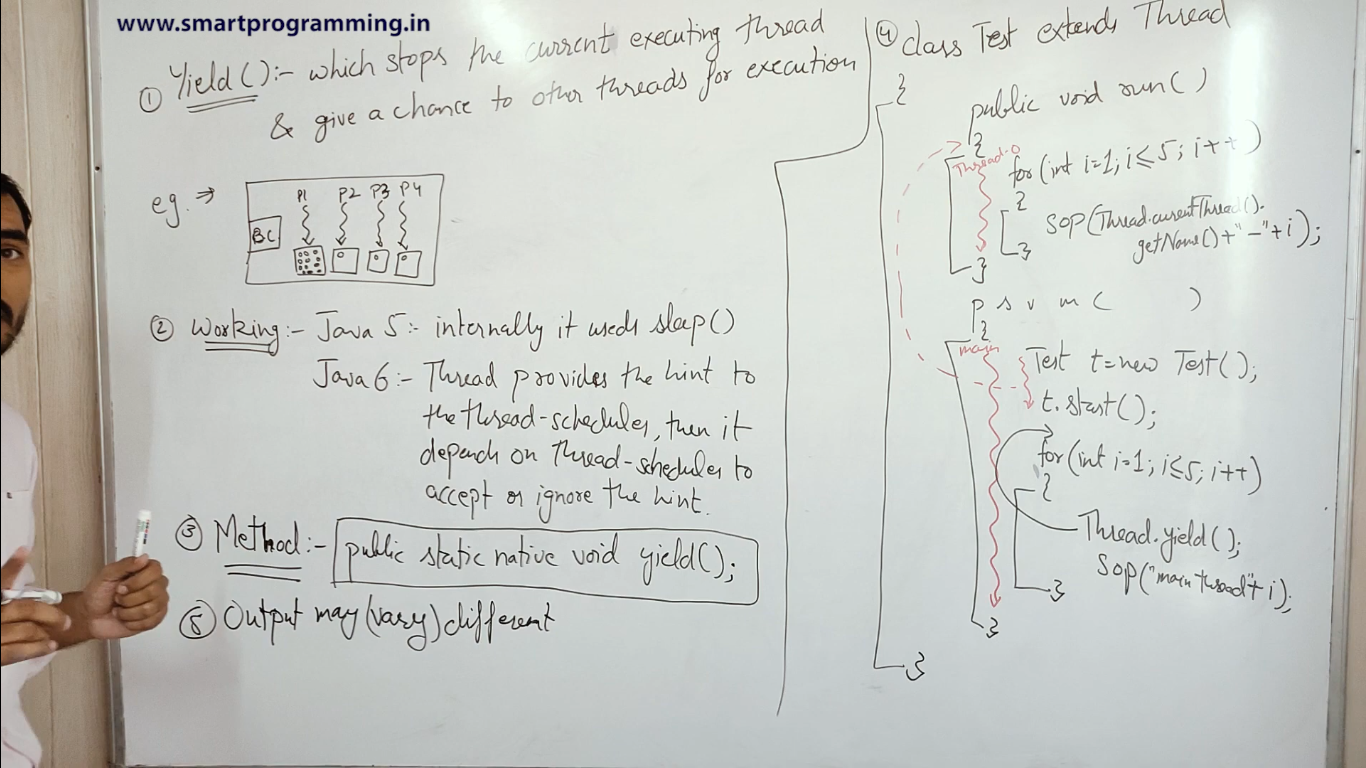 www.smartprogramming.in
① Yield():- which stops the current executing thread
& give a chance to other threads for execution
eg. ⇒
P1 P2 P3 P4
BC
② Working:- Java 5:- internally it used sleep()
Java 6:- Thread provides the hint to
the thread-scheduler, then it
depends on Thread-scheduler to
accept or ignore the hint.
③ Method:- public static native void yield();
⑤ Output may (vary) different
④ class Test extends Thread
{
public void run()
{
Thread-0
for(int i=1; i≤5; i++)
{
SOP(Thread.currentThread().
getName()+"-"+i);
}
}
p s v m ( )
{
main
Test t=new Test();
t.start();
for(int i=1; i≤5; i++)
{
Thread.yield();
SOP("main thread"+i);
}
}
}